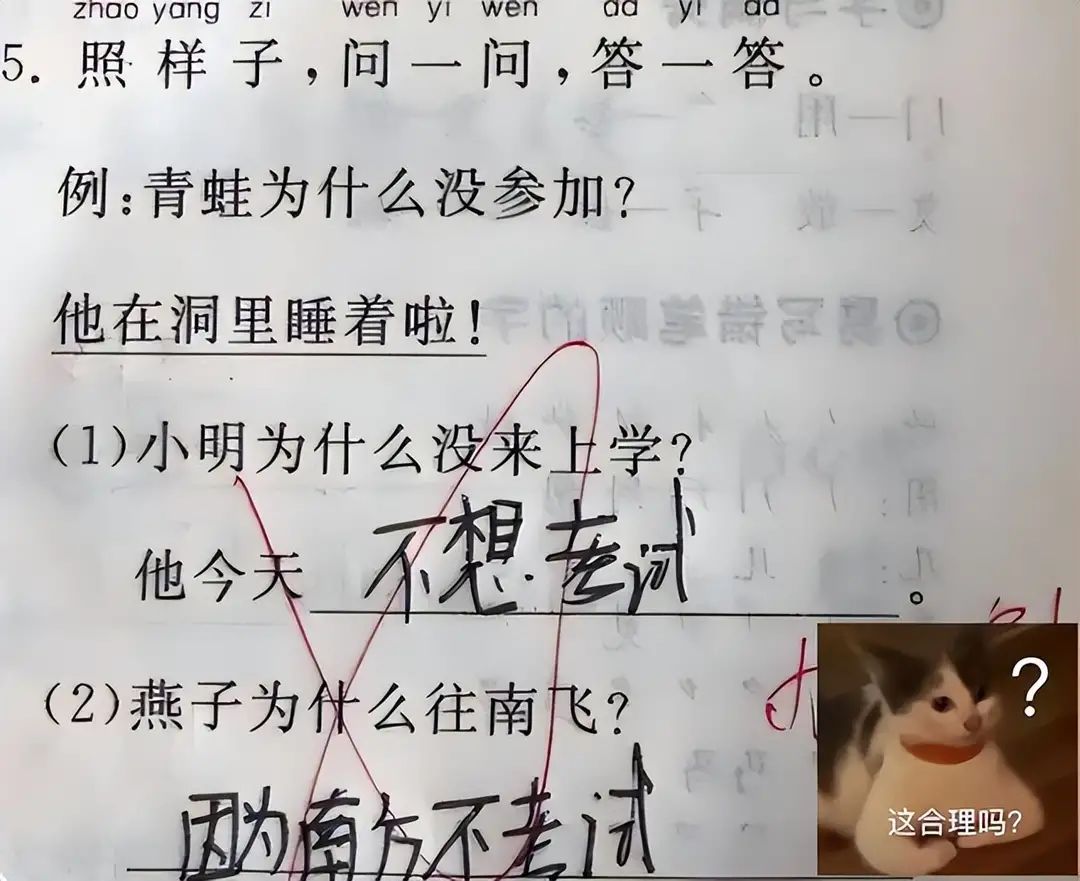 zhao yang zi wen yi wen da yi da
5. 照样子，问一问，答一答。
例：青蛙为什么没参加？
他在洞里睡着啦！
(1)小明为什么没来上学？
他今天不想考试。
(2)燕子为什么往南飞？
因为南方不考试
？
这合理吗？